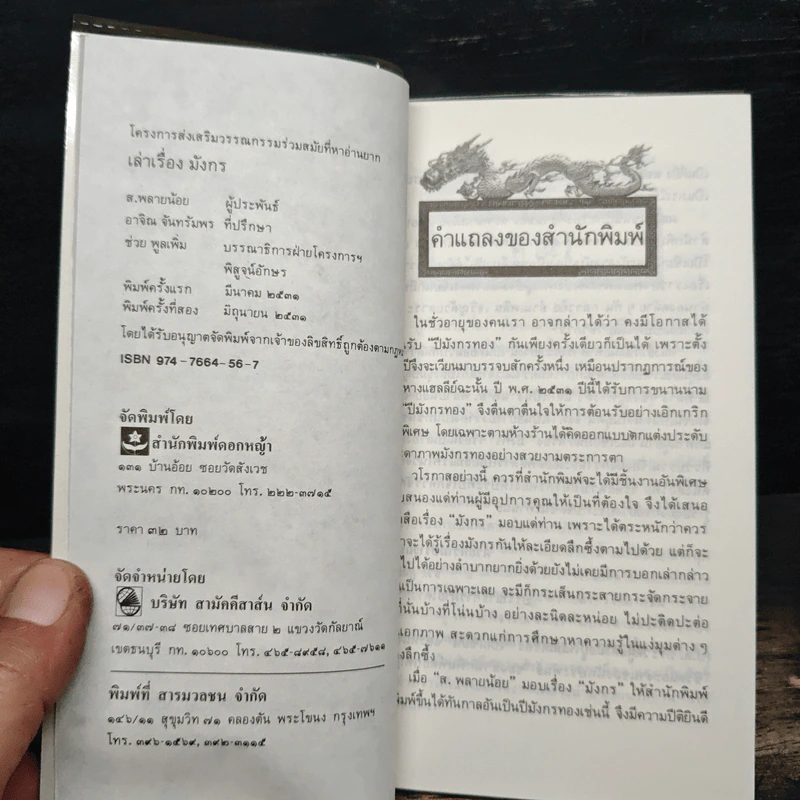 โครงการส่งเสริมวรรณกรรมร่วมสมัยที่หาอ่านยาก
เล่าเรื่อง มังกร
ส.พลายน้อย ผู้ประพันธ์
อาจิณ จันทรัมพร ที่ปรึกษา
ช่วย พูลเพิ่ม บรรณาธิการฝ่ายโครงการฯ
พิสูจน์อักษร
พิมพ์ครั้งแรก มีนาคม ๒๕๓๑
พิมพ์ครั้งที่สอง มิถุนายน ๒๕๓๑
โดยได้รับอนุญาตจัดพิมพ์จากเจ้าของลิขสิทธิ์ถูกต้องตามกฎหมาย
ISBN 974-7664-56-7
จัดพิมพ์โดย
สำนักพิมพ์ดอกหญ้า
๑๓๑ บ้านอ้อย ซอยวัดสังเวช
พระนคร กท. ๑๐๒๐๐ โทร. ๒๒๒-๓๗๑๕
ราคา ๓๒ บาท
จัดจำหน่ายโดย
บริษัท สามัคคีสาส์น จำกัด
๗๑/๓๗-๓๘ ซอยเทศบาลสาย ๒ แขวงวัดกัลยาณ์
เขตธนบุรี กท. ๑๐๖๐๐ โทร. ๔๖๕-๘๙๕๘, ๔๖๕-๗๖๑๑
พิมพ์ที่ สารมวลชน จำกัด
๑๔๖/๑๑ สุขุมวิท ๗๑ คลองตัน พระโขนง กรุงเทพฯ
โทร. ๓๙๖-๑๕๖๙, ๓๙๒-๓๑๑๕
คำแถลงของสำนักพิมพ์
ในชั่วอายุของคนเรา อาจกล่าวได้ว่า คงมีโอกาสได้
รับ "ปีมังกรทอง" กันเพียงครั้งเดียวก็เป็นได้ เพราะตั้ง
ปีจึงจะเวียนมาบรรจบสักครั้งหนึ่ง เหมือนปรากฏการณ์ของ
หางแฮลลีย์ฉะนั้น ปี พ.ศ. ๒๕๓๑ ปีนี้ได้รับการขนานนาม
"ปีมังกรทอง" จึงตื่นตาตื่นใจให้การต้อนรับอย่างเอิกเกริก
พิเศษ โดยเฉพาะตามห้างร้านได้คิดออกแบบตกแต่งประดับ
ตาภาพมังกรทองอย่างสวยงามตระการตา
วโรกาสอย่างนี้ ควรที่สำนักพิมพ์จะได้มีชิ้นงานอันพิเศษ
บสนองแด่ท่านผู้มีอุปการคุณให้เป็นที่ต้องใจ จึงได้เสนอ
สือเรื่อง "มังกร" มอบแด่ท่าน เพราะได้ตระหนักว่าควร
จะได้รู้เรื่องมังกรกันให้ละเอียดลึกซึ้งตามไปด้วย แต่ก็จะ
ไปได้อย่างลำบากยากยิ่งด้วยยังไม่เคยมีการบอกเล่ากล่าว
เป็นการเฉพาะเลย จะมีก็กระเส็นกระสายกระจัดกระจาย
ที่นั่นบ้างที่โน่นบ้าง อย่างละนิดละหน่อย ไม่ปะติดปะต่อ
เอกภาพ สะดวกแก่การศึกษาหาความรู้ในแง่มุมต่าง ๆ
งลึกซึ้ง
เมื่อ "ส. พลายน้อย" มอบเรื่อง "มังกร" ให้สำนักพิมพ์
พิมพ์ขึ้นได้ทันกาลอันเป็นปีมังกรทองเช่นนี้ จึงมีความปีติยินดี